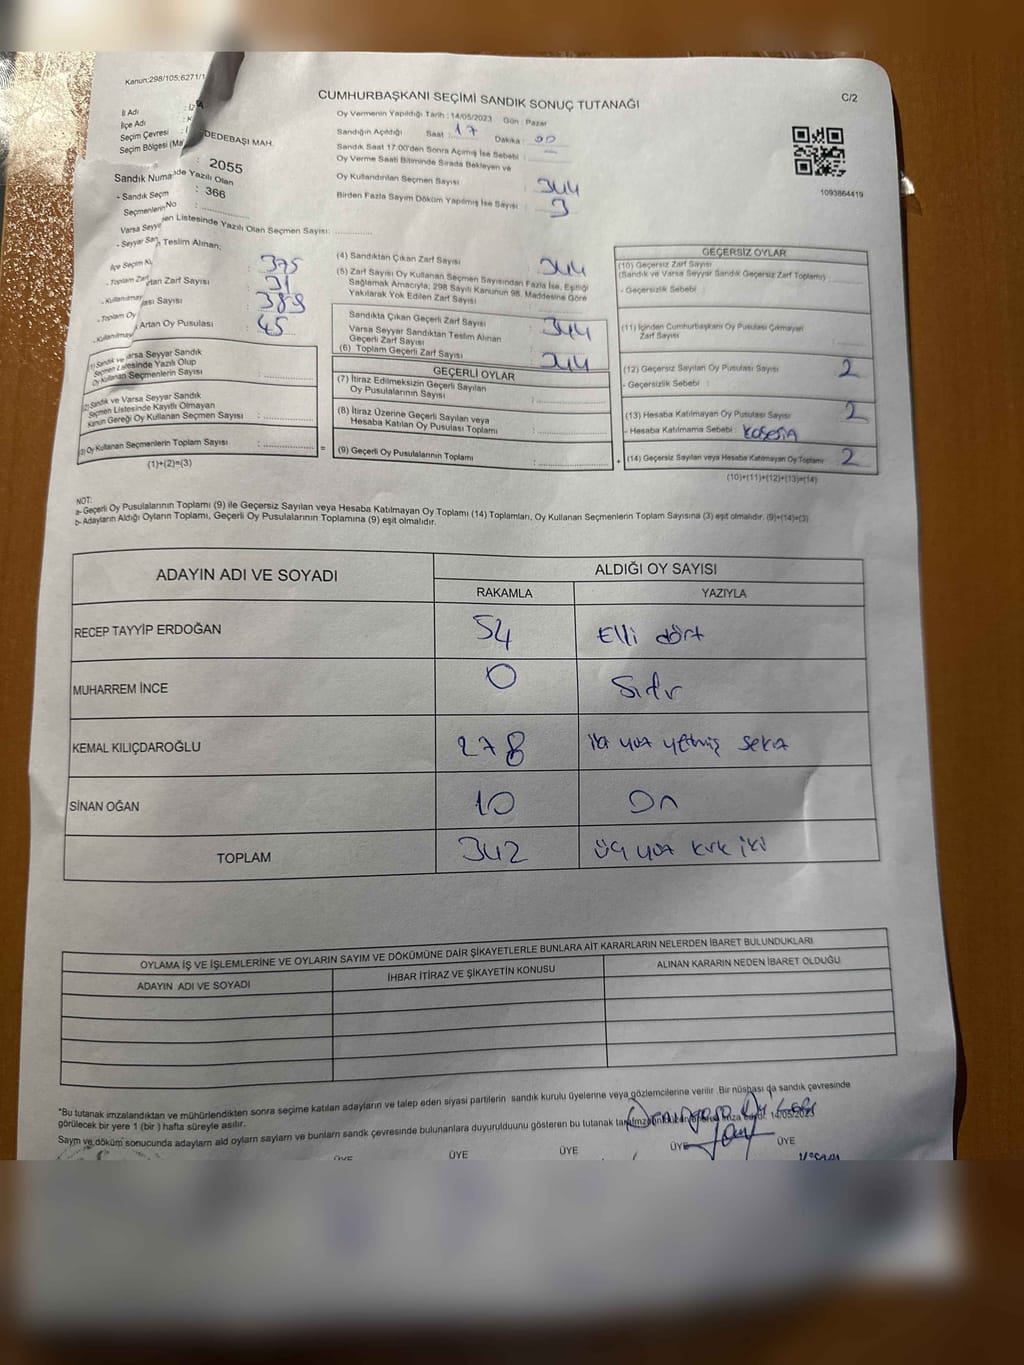 Kanun:298/105;6271/1
CUMHURBAŞKANI SEÇİMİ SANDIK SONUÇ TUTANAĞI
C/2
İl Adı
İlçe Adı
Seçim Çevresi
Seçim Bölgesi
DEDEBAŞI MAH.
Sandık Numa : 2055
Yazılı Olan
- Sandık Seçm : 366
Seçmenlerin
No :
Varsa Seyy
en Listesinde Yazılı Olan Seçmen Sayısı:
- Seyyar San
Teslim Alınan;
Oy Vermenin Yapıldığı Tarih : 14/05/2023 Gün : Pazar
Sandığın Açıldığı Saat : 17 Dakika : 00
Sandık Saat 17:00'den Sonra Açılmış İse Sebebi :
Oy Verme Saati Bitiminde Sırada Bekleyen ve
Oy Kullandırılan Seçmen Sayısı : 344
Birden Fazla Sayım Döküm Yapılmış İse Sayısı : 3
1093864419
İlçe Seçim Ku
375
- Toplam Zarf
rtan Zarf Sayısı 31
- Kullanılmay
ası Sayısı 389
- Toplam Oy
Artan Oy Pusulası 45
- Kullanılmay
(1) Sandık ve Varsa Seyyar Sandık
Seçmen Listesinde Yazılı Olup
Oy Kullanan Seçmenlerin Sayısı :
(2) Sandık ve Varsa Seyyar Sandık
Seçmen Listesinde Kayıtlı Olmayan
Kanun Gereği Oy Kullanan Seçmen Sayısı :
(3) Oy Kullanan Seçmenlerin Toplam Sayısı : =
(1)+(2)=(3)
(4) Sandıktan Çıkan Zarf Sayısı : 344
(5) Zarf Sayısı Oy Kullanan Seçmen Sayısından Fazla İse, Eşitliği
Sağlamak Amacıyla; 298 Sayılı Kanunun 98. Maddesine Göre
Yakılarak Yok Edilen Zarf Sayısı :
Sandıkta Çıkan Geçerli Zarf Sayısı : 344
Varsa Seyyar Sandıktan Teslim Alınan
Geçerli Zarf Sayısı
(6) Toplam Geçerli Zarf Sayısı : 344
GEÇERLİ OYLAR
(7) İtiraz Edilmeksizin Geçerli Sayılan
Oy Pusulalarının Sayısı :
(8) İtiraz Üzerine Geçerli Sayılan veya
Hesaba Katılan Oy Pusulası Toplamı :
(9) Geçerli Oy Pusulalarının Toplamı : +
GEÇERSİZ OYLAR
(10) Geçersiz Zarf Sayısı
(Sandık ve Varsa Seyyar Sandık Geçersiz Zarf Toplamı) :
- Geçersizlik Sebebi :
(11) İçinden Cumhurbaşkanı Oy Pusulası Çıkmayan
Zarf Sayısı :
(12) Geçersiz Sayılan Oy Pusulası Sayısı : 2
- Geçersizlik Sebebi :
(13) Hesaba Katılmayan Oy Pusulası Sayısı : 2
- Hesaba Katılmama Sebebi :
(14) Geçersiz Sayılan veya Hesaba Katılmayan Oy Toplamı : 2
(10)+(11)+(12)+(13)=(14)
NOT:
a- Geçerli Oy Pusulalarının Toplamı (9) ile Geçersiz Sayılan veya Hesaba Katılmayan Oy Toplamı (14) Toplamları, Oy Kullanan Seçmenlerin Toplam Sayısına (3) eşit olmalıdır. (9)+(14)=(3)
b- Adayların Aldığı Oyların Toplamı, Geçerli Oy Pusulalarının Toplamına (9) eşit olmalıdır.
ADAYIN ADI VE SOYADI ALDIĞI OY SAYISI
RAKAMLA YAZIYLA
RECEP TAYYİP ERDOĞAN 54 Elli dört
MUHARREM İNCE 0 Sıfır
KEMAL KILIÇDAROĞLU 278 iki yüz yetmiş sekiz
SİNAN OĞAN 10 On
TOPLAM 342 üç yüz kırk iki
OYLAMA İŞ VE İŞLEMLERİNE VE OYLARIN SAYIM VE DÖKÜMÜNE DAİR ŞİKAYETLERLE BUNLARA AİT KARARLARIN NELERDEN İBARET BULUNDUKLARI
ADAYIN ADI VE SOYADI İHBAR İTİRAZ VE ŞİKAYETİN KONUSU ALINAN KARARIN NEDEN İBARET OLDUĞU
*Bu tutanak imzalandıktan ve mühürlendikten sonra seçime katılan adayların ve talep eden siyasi partilerin sandık kurulu üyelerine veya gözlemcilerine verilir .Bir nüshası da sandık çevresinde
görülecek bir yere 1 (bir ) hafta süreyle asılır.
Sayım ve döküm sonucunda adayların ald oyların sayların ve bunların sandk çevresinde bulunanlara duyurulduunu gösteren bu tutanak 14/05/2023
ÜYE ÜYE ÜYE ÜYE ÜYE